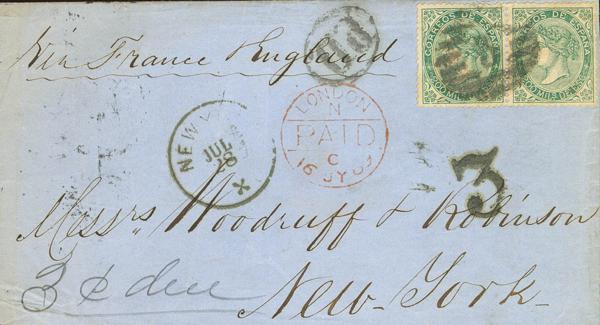 Via France England
P.D
CORREOS DE ESPAÑA
200 MILS DE
CORREOS DE ESPAÑA
200 MILS DE
LONDON
N
PAID
C
16 JY 69
NEW
JUL
28
3
Messrs Woodruff & Robinson
3 ¢ due
New-York-